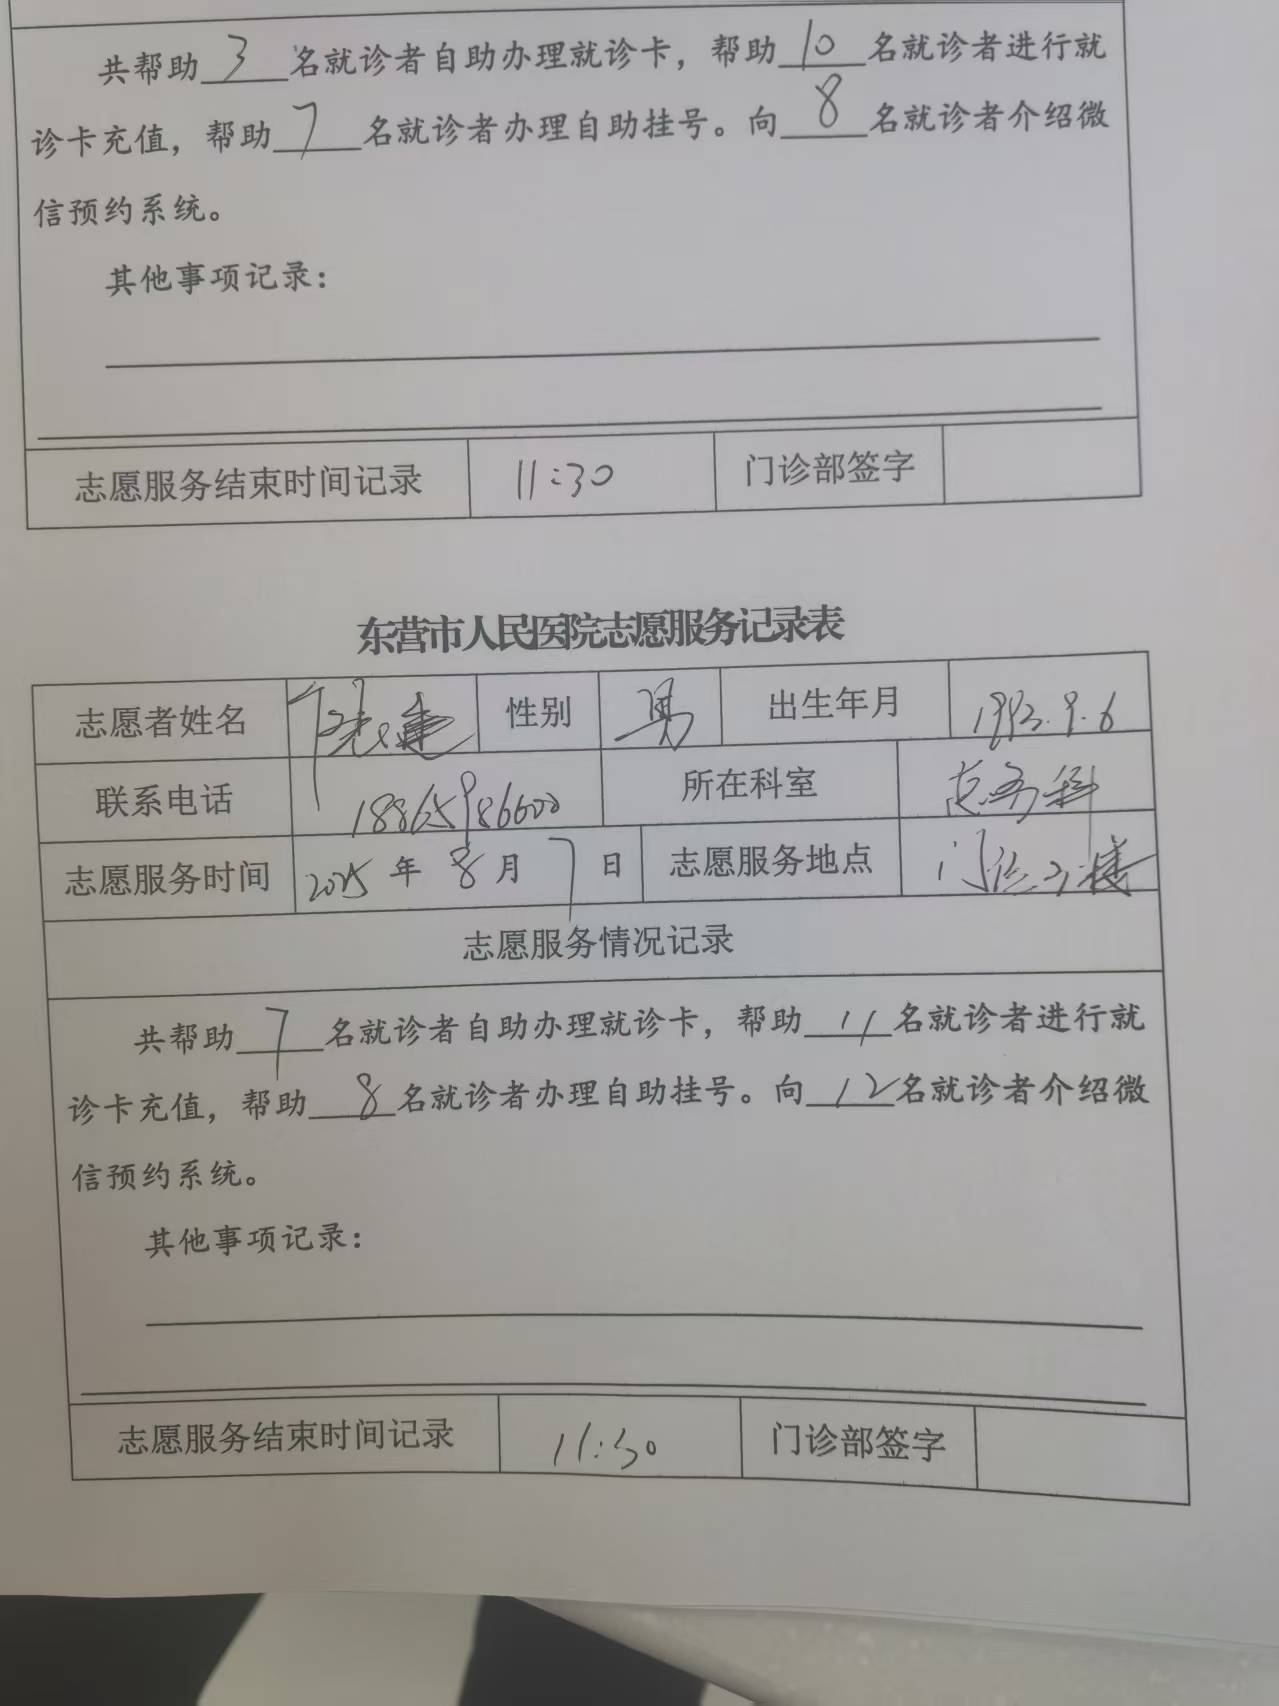 共帮助 3 名就诊者自助办理就诊卡，帮助 10 名就诊者进行就
诊卡充值，帮助 7 名就诊者办理自助挂号。向 8 名就诊者介绍微
信预约系统。
其他事项记录：
志愿服务结束时间记录 11:30 门诊部签字
东营市人民医院志愿服务记录表
志愿者姓名 性别 男 出生年月 1993.9.6
联系电话 18865986600 所在科室 总务科
志愿服务时间 2025 年 8 月 7 日 志愿服务地点 门诊
志愿服务情况记录
共帮助 7 名就诊者自助办理就诊卡，帮助 11 名就诊者进行就
诊卡充值，帮助 8 名就诊者办理自助挂号。向 12 名就诊者介绍微
信预约系统。
其他事项记录：
志愿服务结束时间记录 11:30 门诊部签字